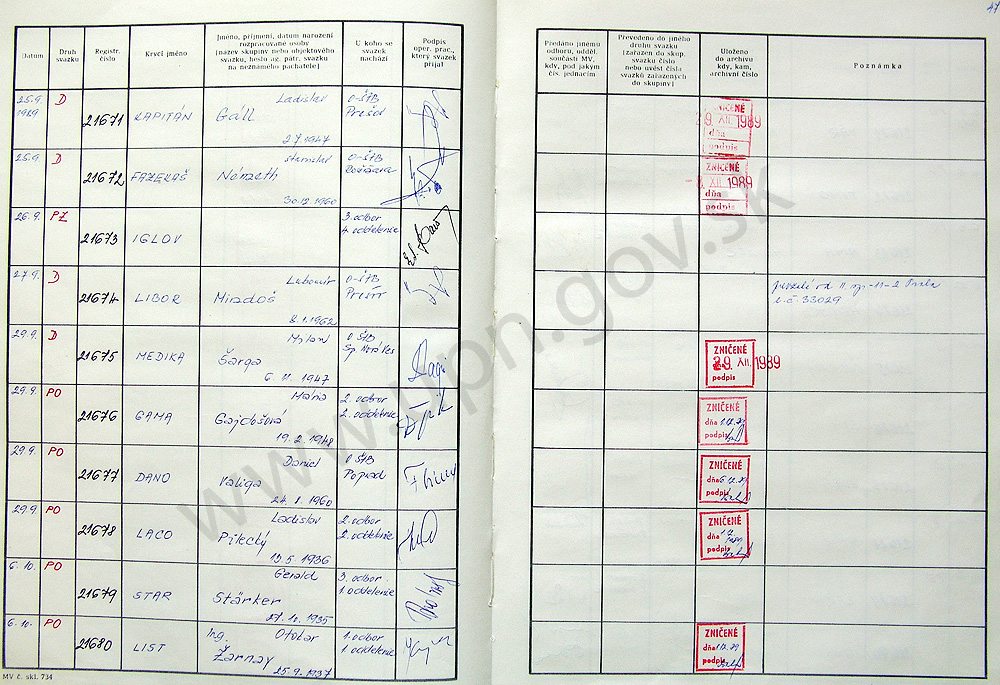 47
Datum
Druh svazku
Registr. číslo
Krycí jméno
Jméno, příjmení, datum narození
rozpracované osoby
[název skupiny nebo objektového
svazku, heslo ag. pátr. svazku
na neznámého pachatele]
U koho se
svazek
nachází
Podpis
oper. prac.,
který svazek
přijal
Předáno jinému
odboru, odděl.
součásti MV,
kdy, pod jakým
čís. jednacím
Převedeno do jiného
druhu svazku
[zařazen do skup.
svazku číslo
nebo uvést čísla
svazků zařazených
do skupiny]
Uloženo
do archivu
kdy, kam,
archivní číslo
Poznámka
25.9. 1989 D 21671 KAPITÁN Ladislav Gáll 2.7.1947 O-ŠtB Prešov
ZNIČENÉ
29. XII. 1989
dňa
podpis
25.9. D 21672 FAZEKAŠ Stanislav Németh 30.12.1960 O-ŠtB Rožňava
ZNIČENÉ
XII. 1989
dňa
podpis
26.9. PZ 21673 IGLOV 3. odbor 4. oddelenie
27.9. D 21674 LIBOR Ľubomír Miadoš 8.1.1962 O-ŠtB Prešov
33029
29.9. D 21675 MEDIKA Milan Šarga 1947 O ŠtB Sp. Nová Ves
ZNIČENÉ
29. XII. 1989
podpis
29.9. PO 21676 GAMA Mária Gajdošová 19.2.1948 2. odbor 2. oddelenie
ZNIČENÉ
dňa
podpis
29.9 PO 21677 DANO Daniel Paliga 24.1.1960 O ŠtB Poprad
ZNIČENÉ
dňa
podpis
29.9 PO 21678 LACO Ladislav Pilecký 13.5.1936 2. odbor 2. oddelenie
ZNIČENÉ
dňa
podpis
6.10. PO 21679 STAR Gerald Stärker 27.10.1935 3. odbor 1. oddelenie
6.10. PO 21680 LIST Ing. Otokar Žarnay 25.9.1937 1. odbor 1. oddelenie
ZNIČENÉ
dňa
podpis
MV č. skl. 734
www.upn.gov.sk